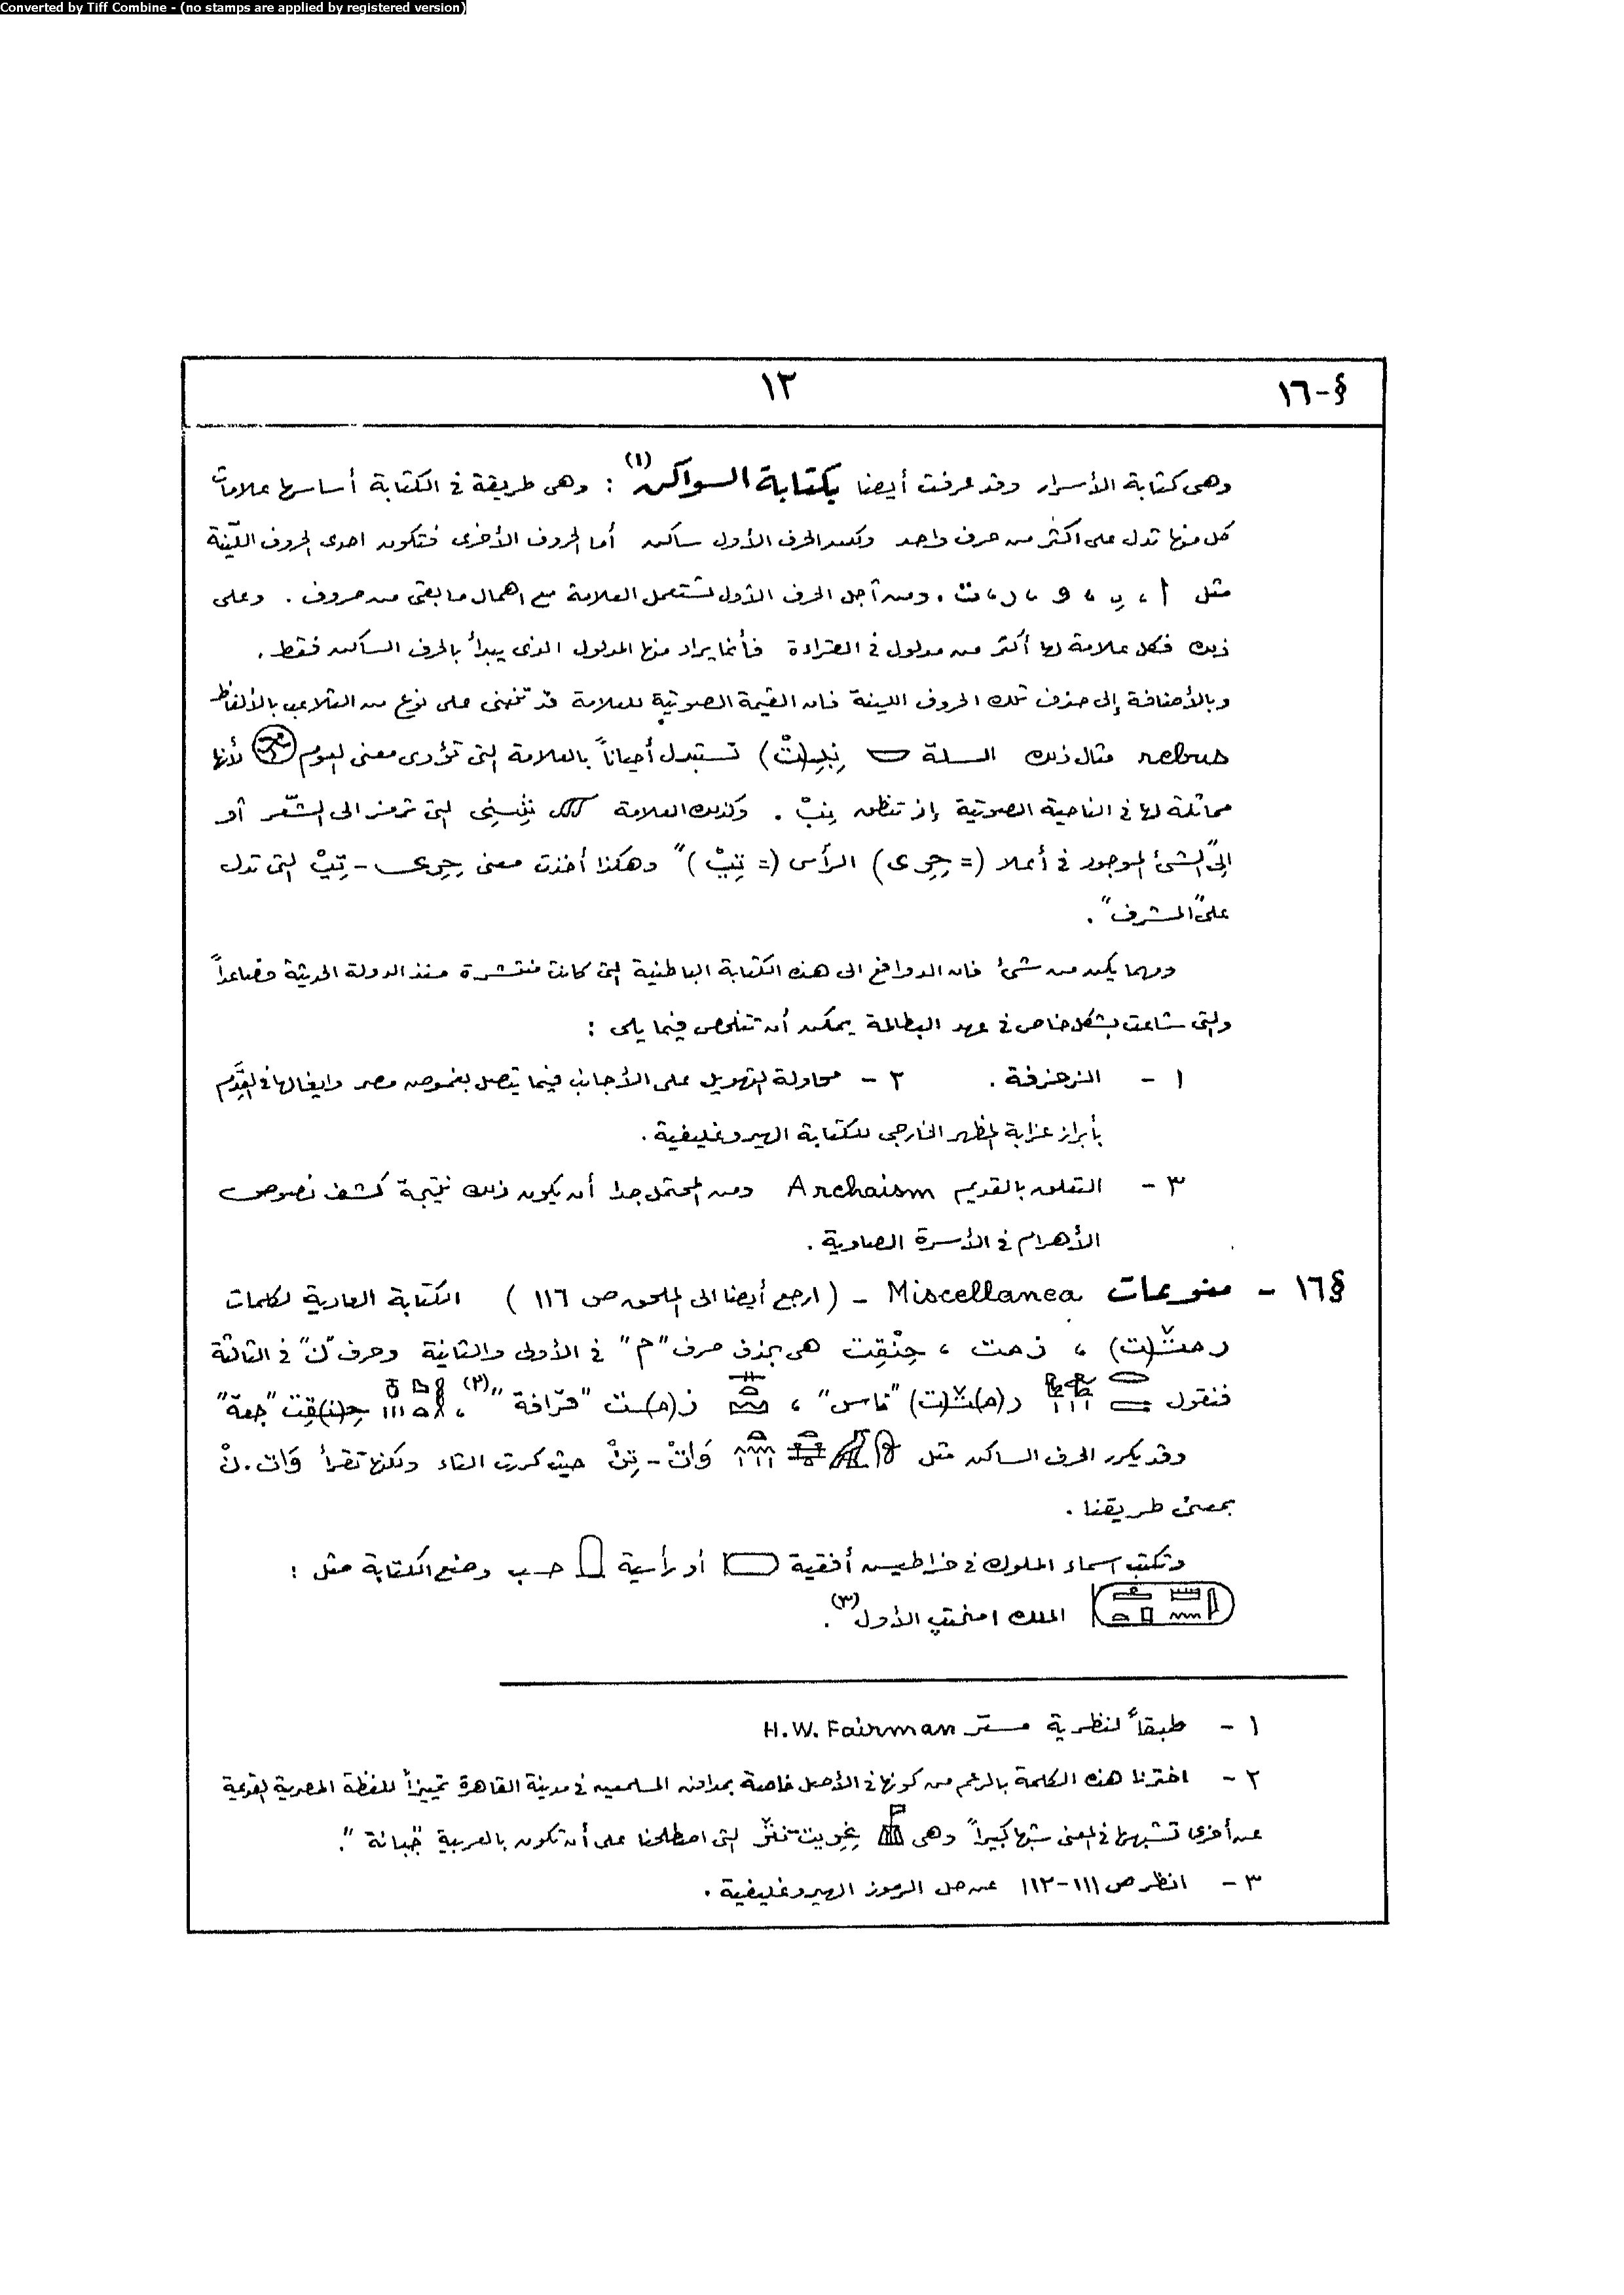 Converted by Tiff Combine - (no stamps are applied by registered version)
§-١٦
١٣
وهى كتابة الأسرار وقد عرفت أيضا بكتابة السواكن (١) : وهى طريقة فى الكتابة أساسها علامات
كل منها تدل على أكثر من حرف واحد الحرف الأول ساكن أما الحروف الأخرى فتكون احدى الحروف اللّينة
مثل أ ، ى ، و ، ر ، ت . ومن أجل الحرف الأول تستعمل العلامة مع اهمال ما بقى من حروف . وعلى
ذلك فكل علامة لها أكثر من مدلول فى القراءة فأنما يراد منها المدلول الذى يبدأ بالحرف الساكن فقط .
وبالأضافة إلى حذف تلك الحروف اللينة فان القيمة الصوتية للعلامة قد تنبنى على نوع من التلاعب بالألفاظ
rebus مثال ذلك السلة نِبِ(تْ) تستبدل أحياناً بالعلامة التى تؤدى معنى اليوم لأنها
مماثلة لها فى الناحية الصوتية إذ تنطق نِبْ . وكذلك العلامة التى ترمز الى الشّعر أو
الى "الشئ الموجود فى أعلا (= حِرِ ى) الرأس (= تِبْ)" وهكذا أخذت معنى حِرِى - تِبْ التى تدل
على "المشرف" .
ومهما يكن من شئ فان الدوافع الى هذه الكتابة الباطنية التى كانت منتشرة منذ الدولة الحديثة فصاعداً
والتى شاعت بشكل خاص فى عهد البطالمة يمكن أن تتلخص فيما يلى :
١ - الزخرفة . ٢ - محاولة التهويل على الأجانب فيما يتصل بغموض مصر وايغالها فى القِدَم
بأبراز غرابة المظهر الخارجى للكتابة الهيروغليفية .
٣ - التعلق بالقديم Archaism ومن المحتمل جدا أن يكون ذلك نتيجة كشف نصوص
الأهرام فى الأسرة الصاوية .
§١٦ - منوعات Miscellanea - (ارجع أيضا الى الملحق ص ١١٦ ) الكتابة العادية لكلمات
رمث(ت) ، زمت ، حِنْقِت هى بحذف حرف "م" فى الأولى والثانية وحرف "ن" فى الثالثة
فنقول ر(م)ث(ت) "ناس" ، ز(م)ت "قرّافة" (٢) ، حِ(نْ)قِت "جعة"
وقد يكرر الحرف الساكن مثل وَاتْ - تِنْ حيث كررت التاء ولكنها تقرأ وَات . نْ
بمعنى طريقنا .
وتكتب اسماء الملوك فى خراطيس أفقية أو رأسية حسب وضع الكتابة مثل :
الملك امنحتب الأول (٣) .
١ - طبقاً لنظرية مستر H.W. Fairman
٢ - اخترنا هذه الكلمة بالرغم من كونها فى الأصل خاصة بمدافن المسلمين فى مدينة القاهرة تمييزاً للفظة المصرية القديمة
عن أخرى تشبهها فى المعنى شبها كبيراً وهى التى اصطلحنا على أن تكون بالعربية "جبانة" .
٣ - انظر ص ١١١-١١٢ عن حل الرموز الهيروغليفية .